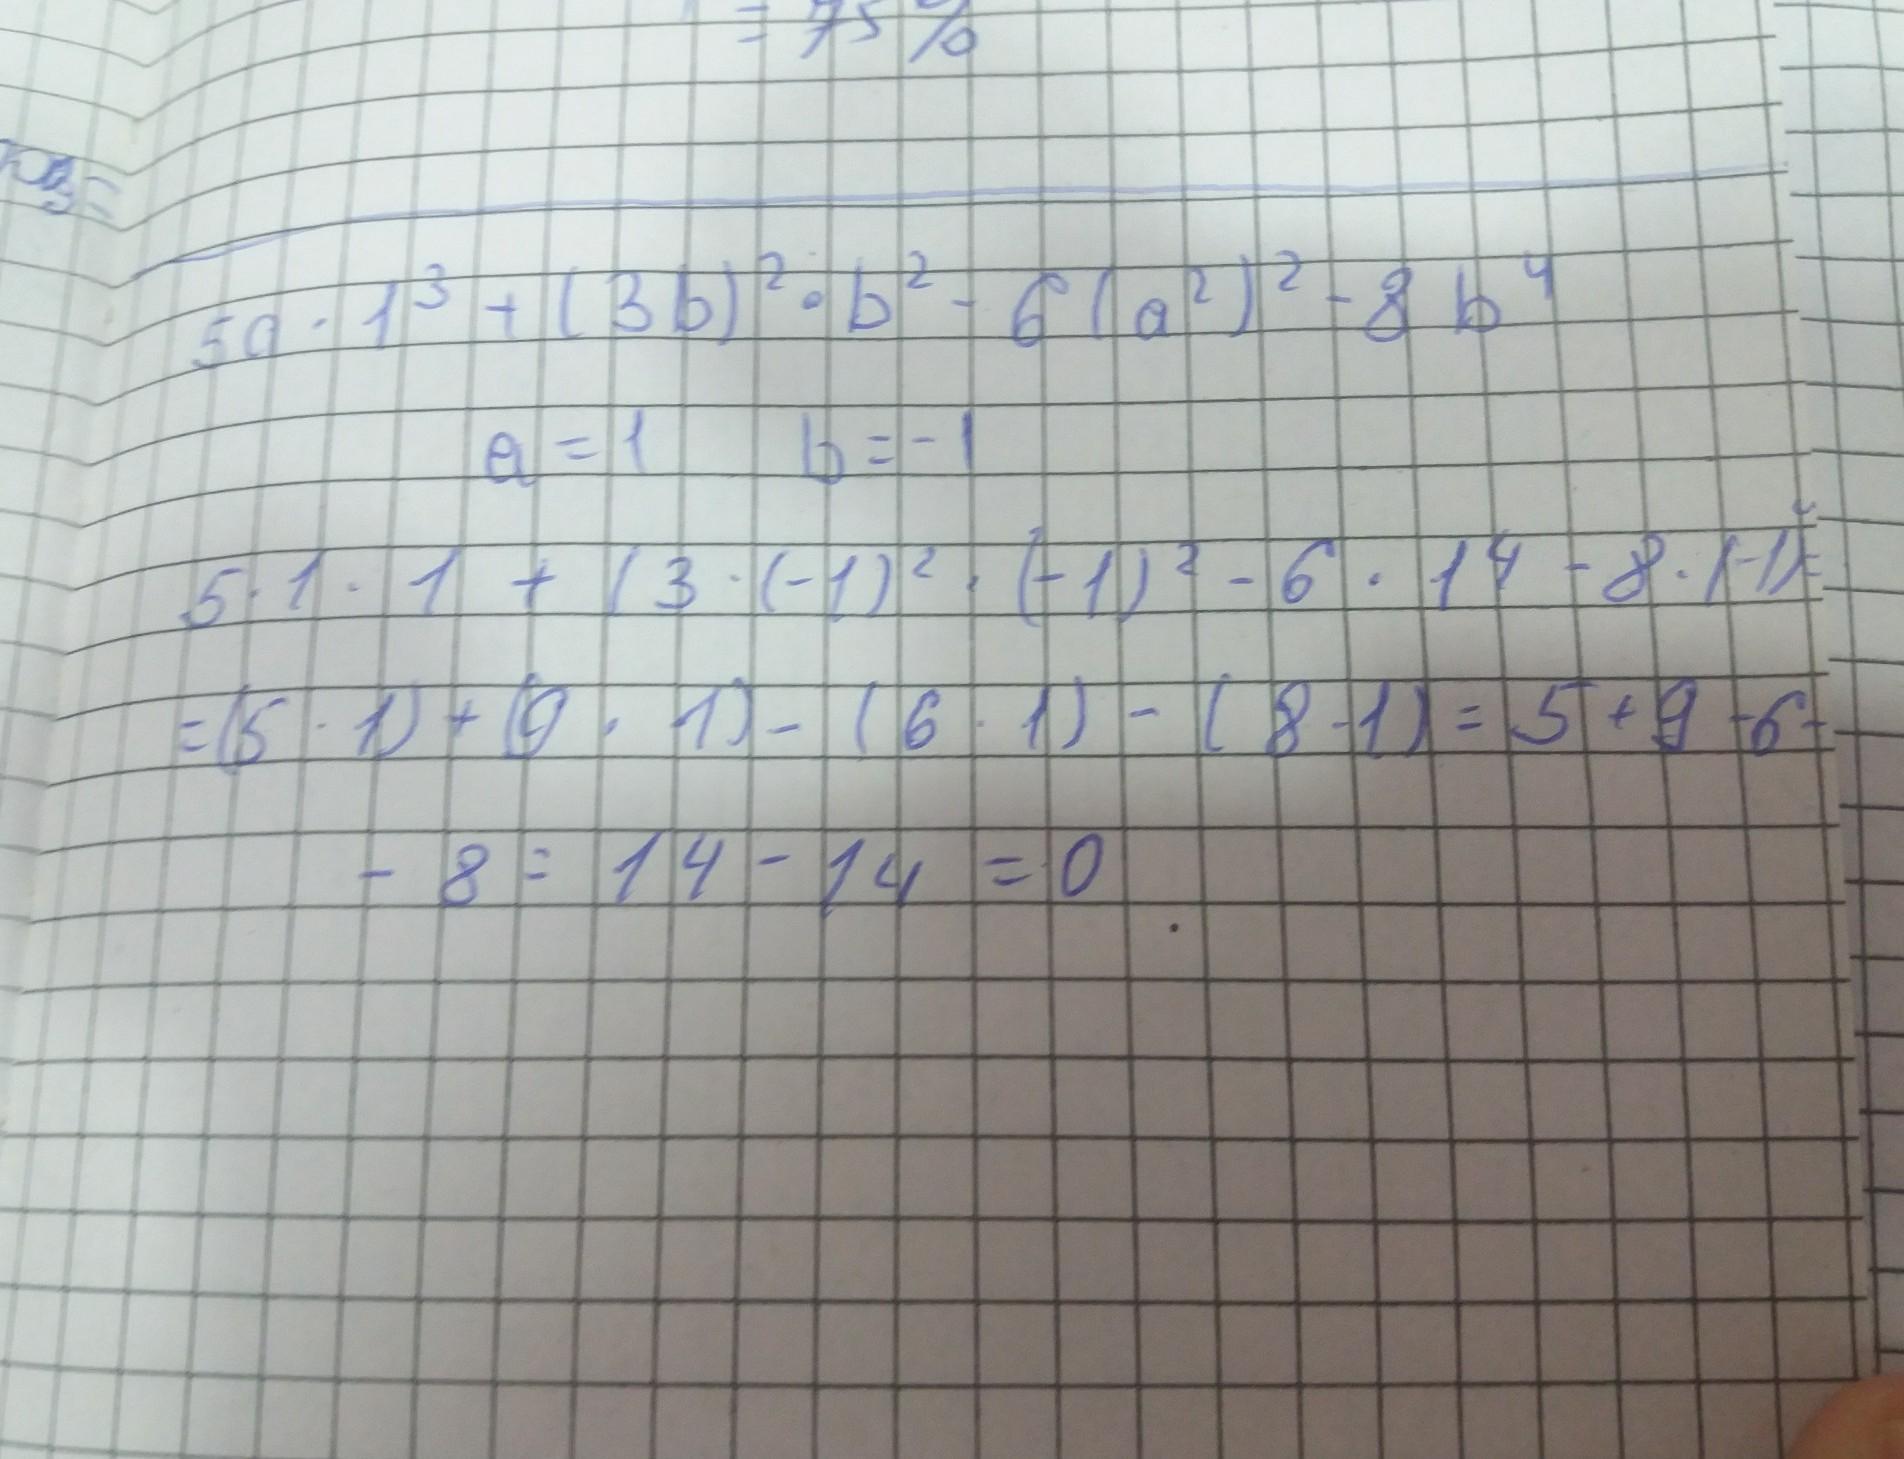 = 75%
5a · 1³ + (3b)² · b² - 6(a²)² - 8b⁴
a = 1 b = -1
5 · 1 · 1 + (3 · (-1)² · (-1)² - 6 · 1⁴ - 8 · (-1)⁴ =
= (5 · 1) + (9 · 1) - (6 · 1) - (8 · 1) = 5 + 9 - 6 -
- 8 = 14 - 14 = 0